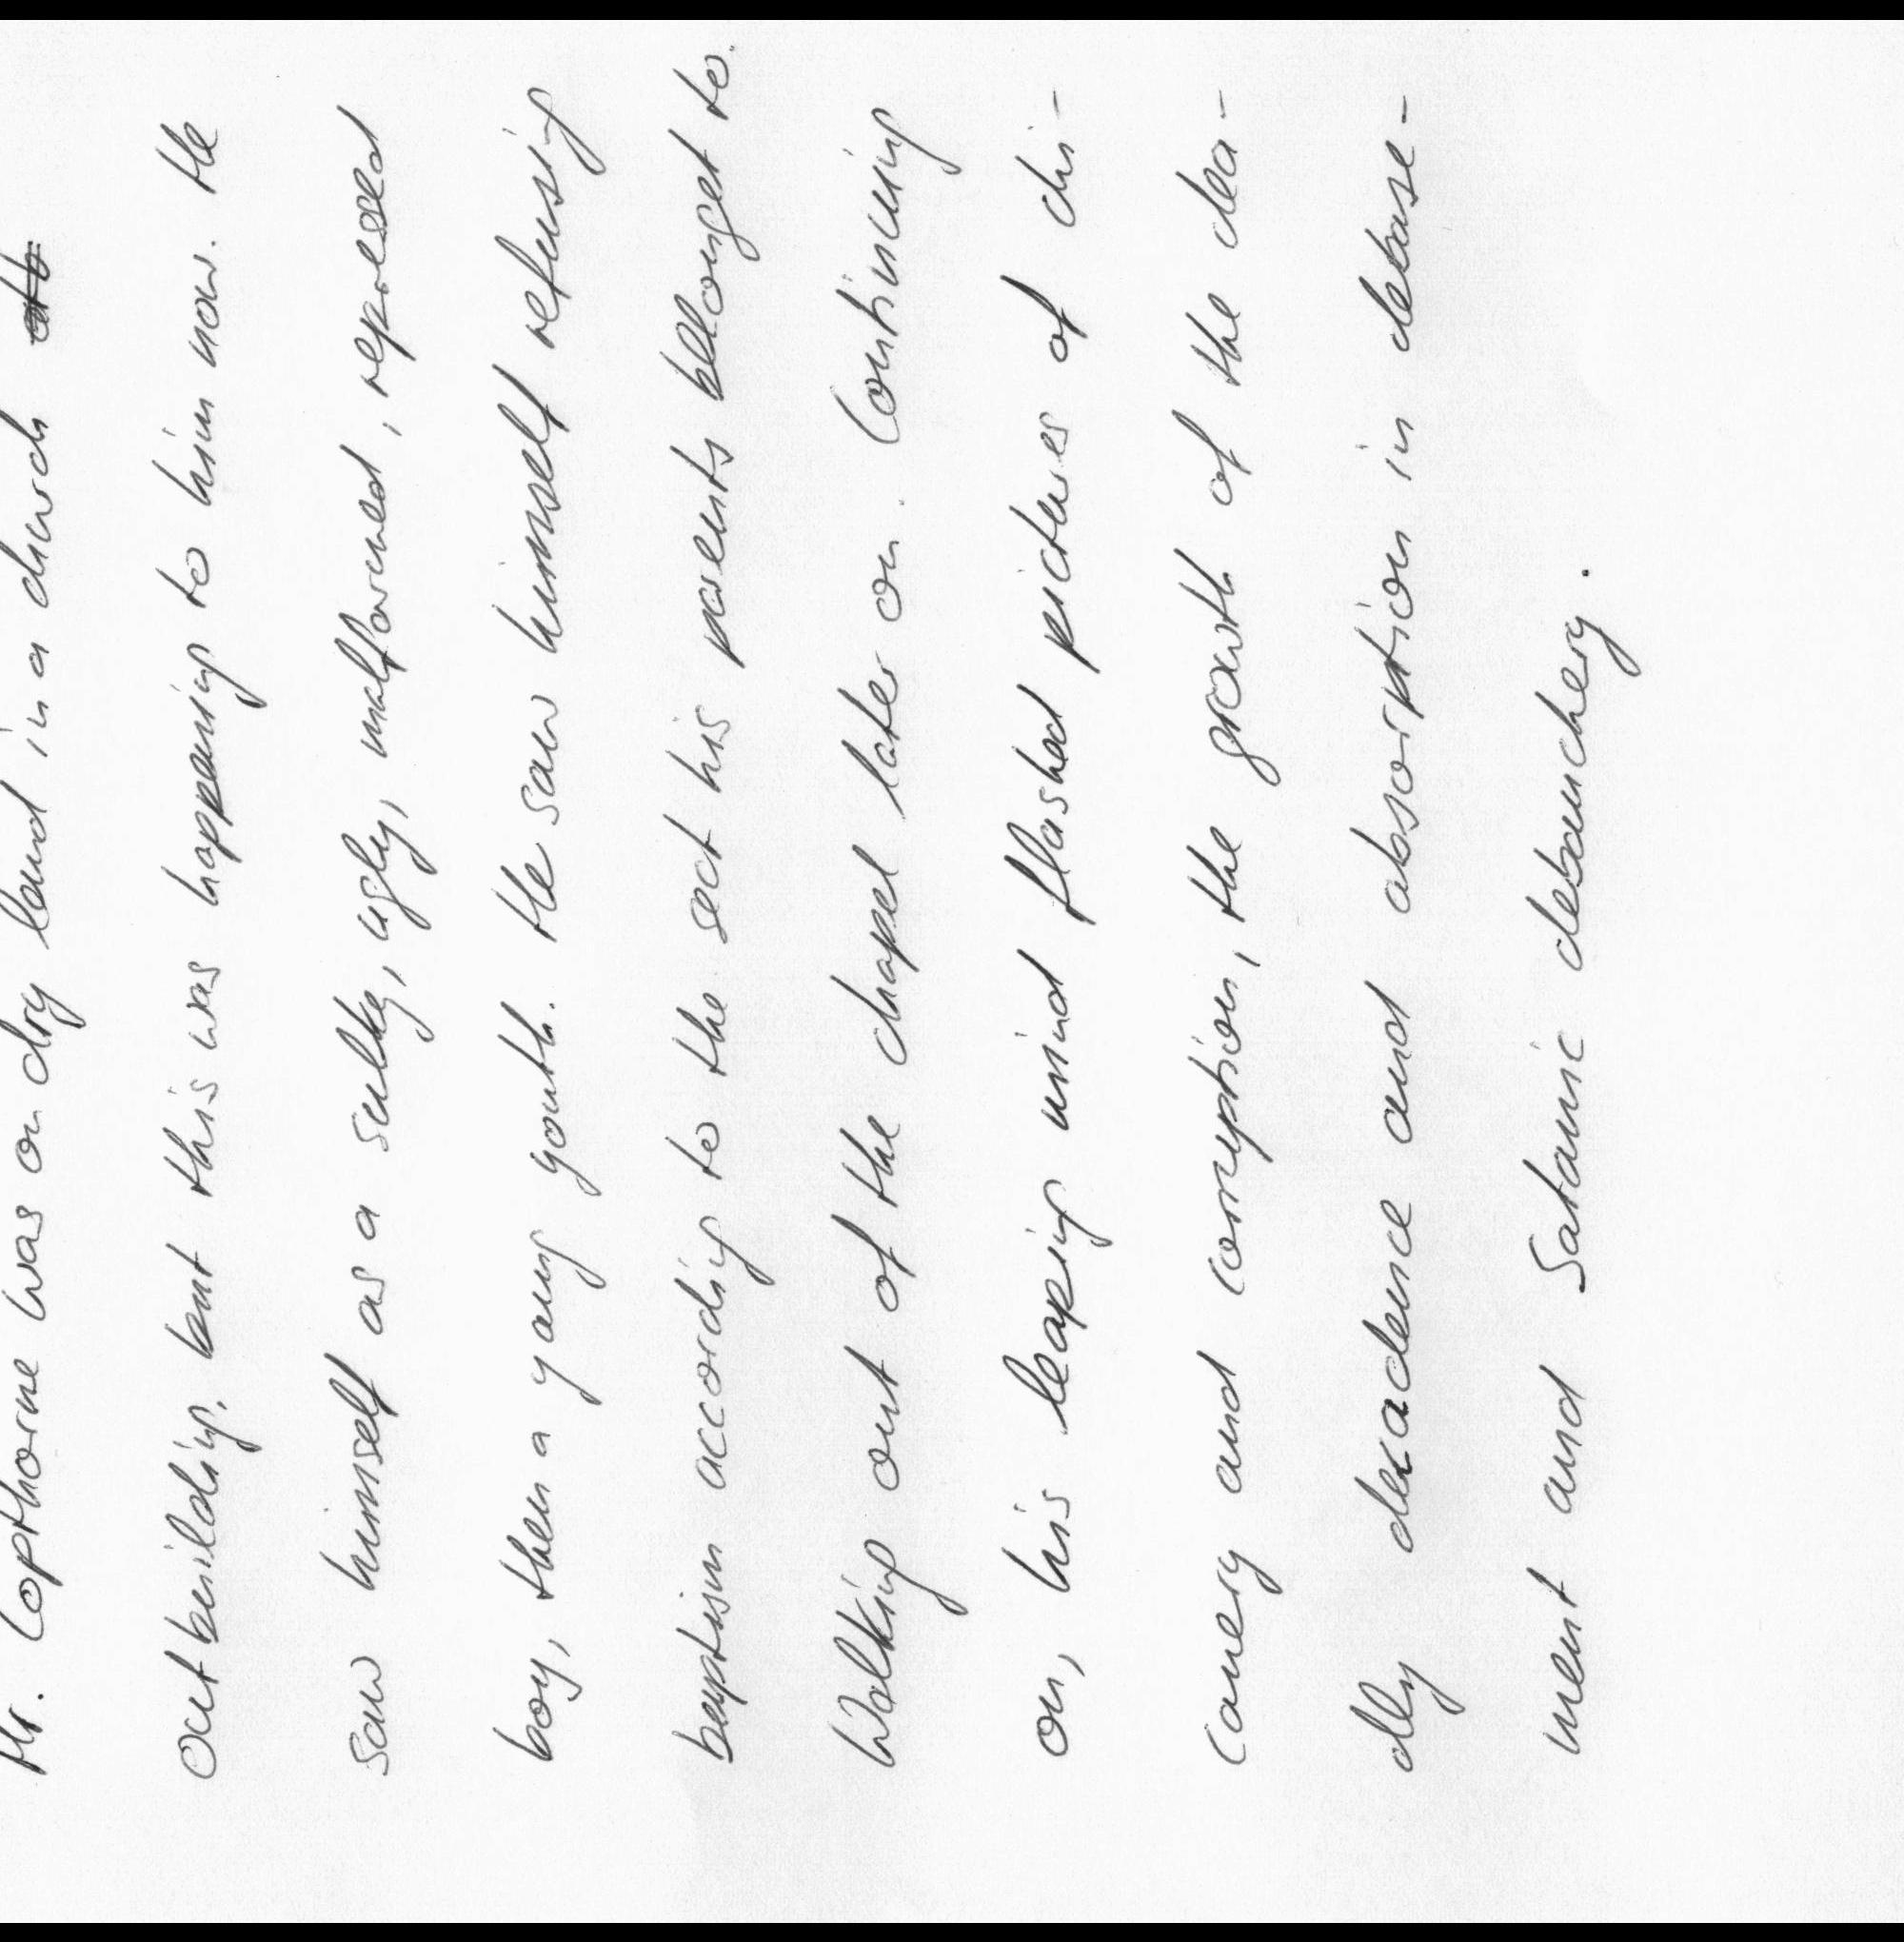 Mr. Copthorne was on dry land in a church
outbuilding, but this was happening to him now. He
saw himself as a sulky, ugly, malformed, repressed
boy, then a young youth. He saw himself refusing
baptism according to the sect his parents belonget to.
Walking out of the chapel later on. Continuing
on, his leaping mind flashed pictures of chi-
canery and corruption, the growth of the dea-
dly decadence and absorption in debase-
ment and Satanic debauchery.